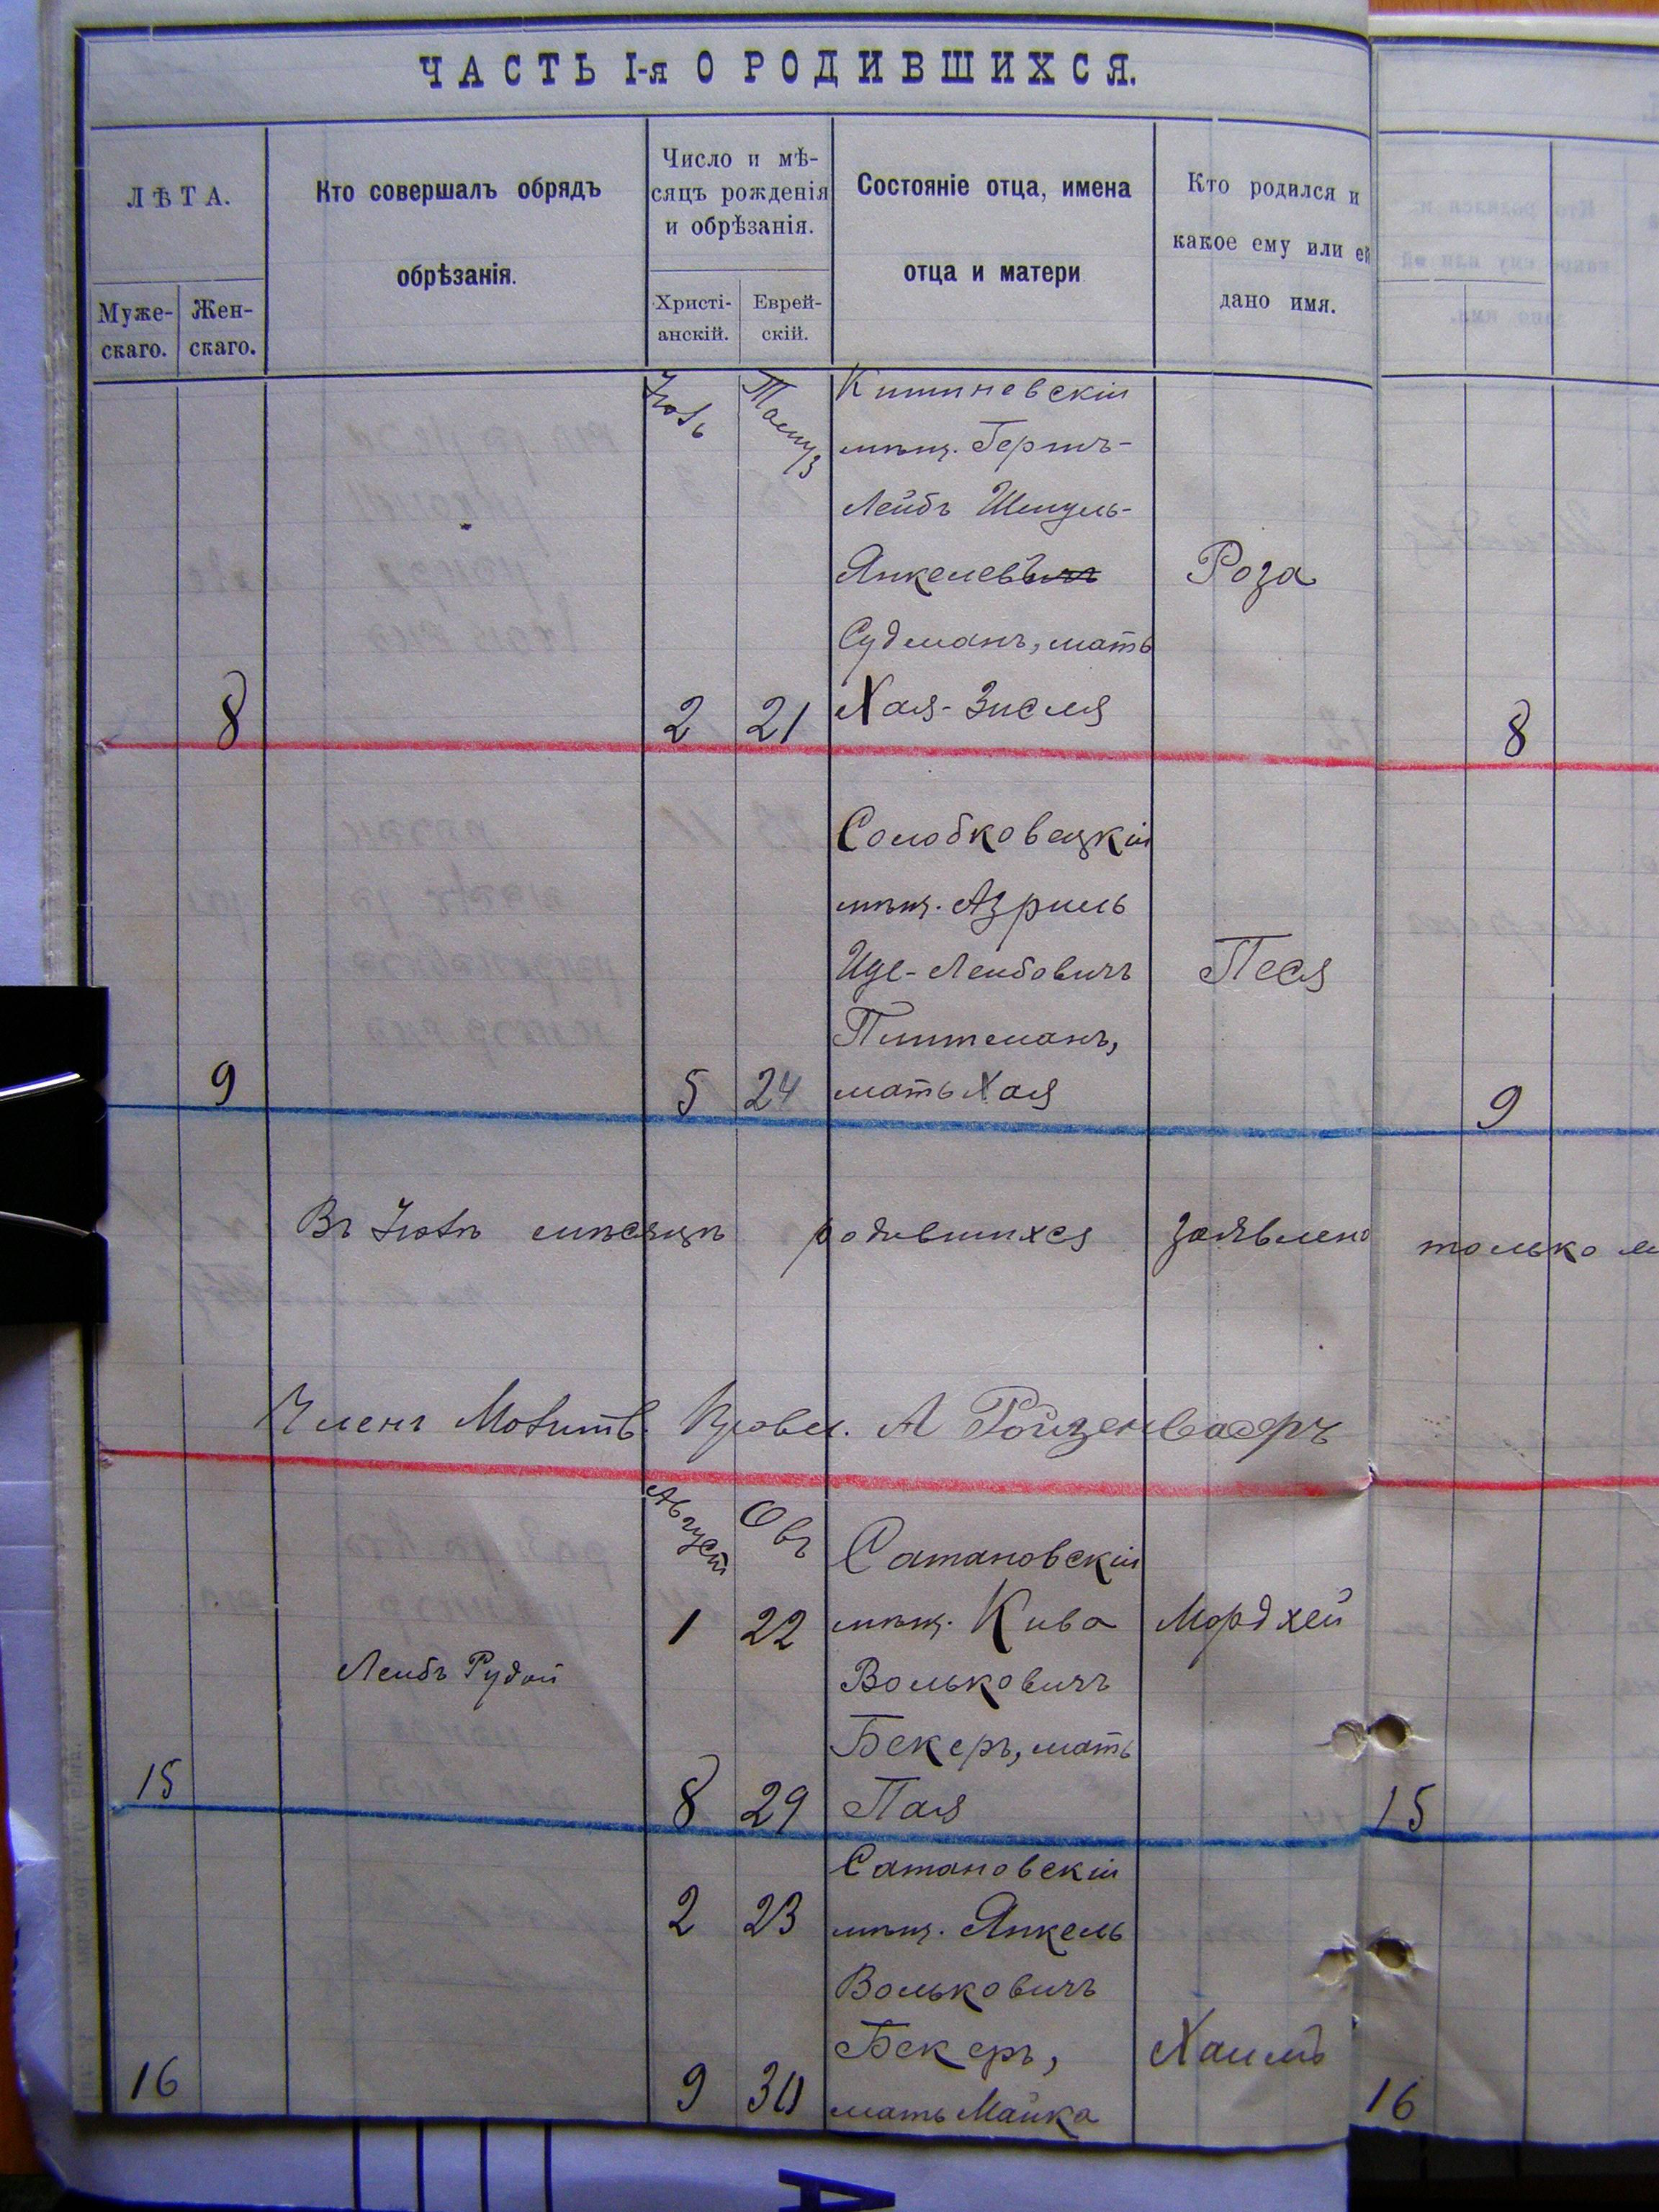 ЧАСТЬ I-я О РОДИВШИХСЯ.
ЛѢТА.
Муже-
скаго.
Жен-
скаго.
Кто совершалъ обрядъ
обрѣзанія.
Число и мѣ-
сяцъ рожденія
и обрѣзанія.
Христі-
анскій.
Еврей-
скій.
Состояніе отца, имена
отца и матери
Кто родился и
какое ему или ей
дано имя.
Іюль
Тамуз
Кишиневскій
мѣщ. Гершъ-
Лейбъ Шмуль-
Янкелевичъ
Судманъ, мать
Хая-Зисля
Роза
8
2
21
8
Солобковецкій
мѣщ. Азриль
Иде-Лейбовичъ
Питтеманъ,
мать Хая
Песя
9
5
24
9
Въ Іюлѣ мѣсяцѣ родившихся заявлено только
Членъ Молитв. Правл. А Ройзенвасеръ
Август
Овъ
Сатановскій
1 22 мѣщ. Кива Мордхей
Лейбъ Рудой
Вольковичъ
Бекеръ, мать
15
8 29 Пая
15
Сатановскій
2 23 мѣщ. Янкель
Вольковичъ
Бекеръ, Хаимъ
16
9 30 мать Майка
16